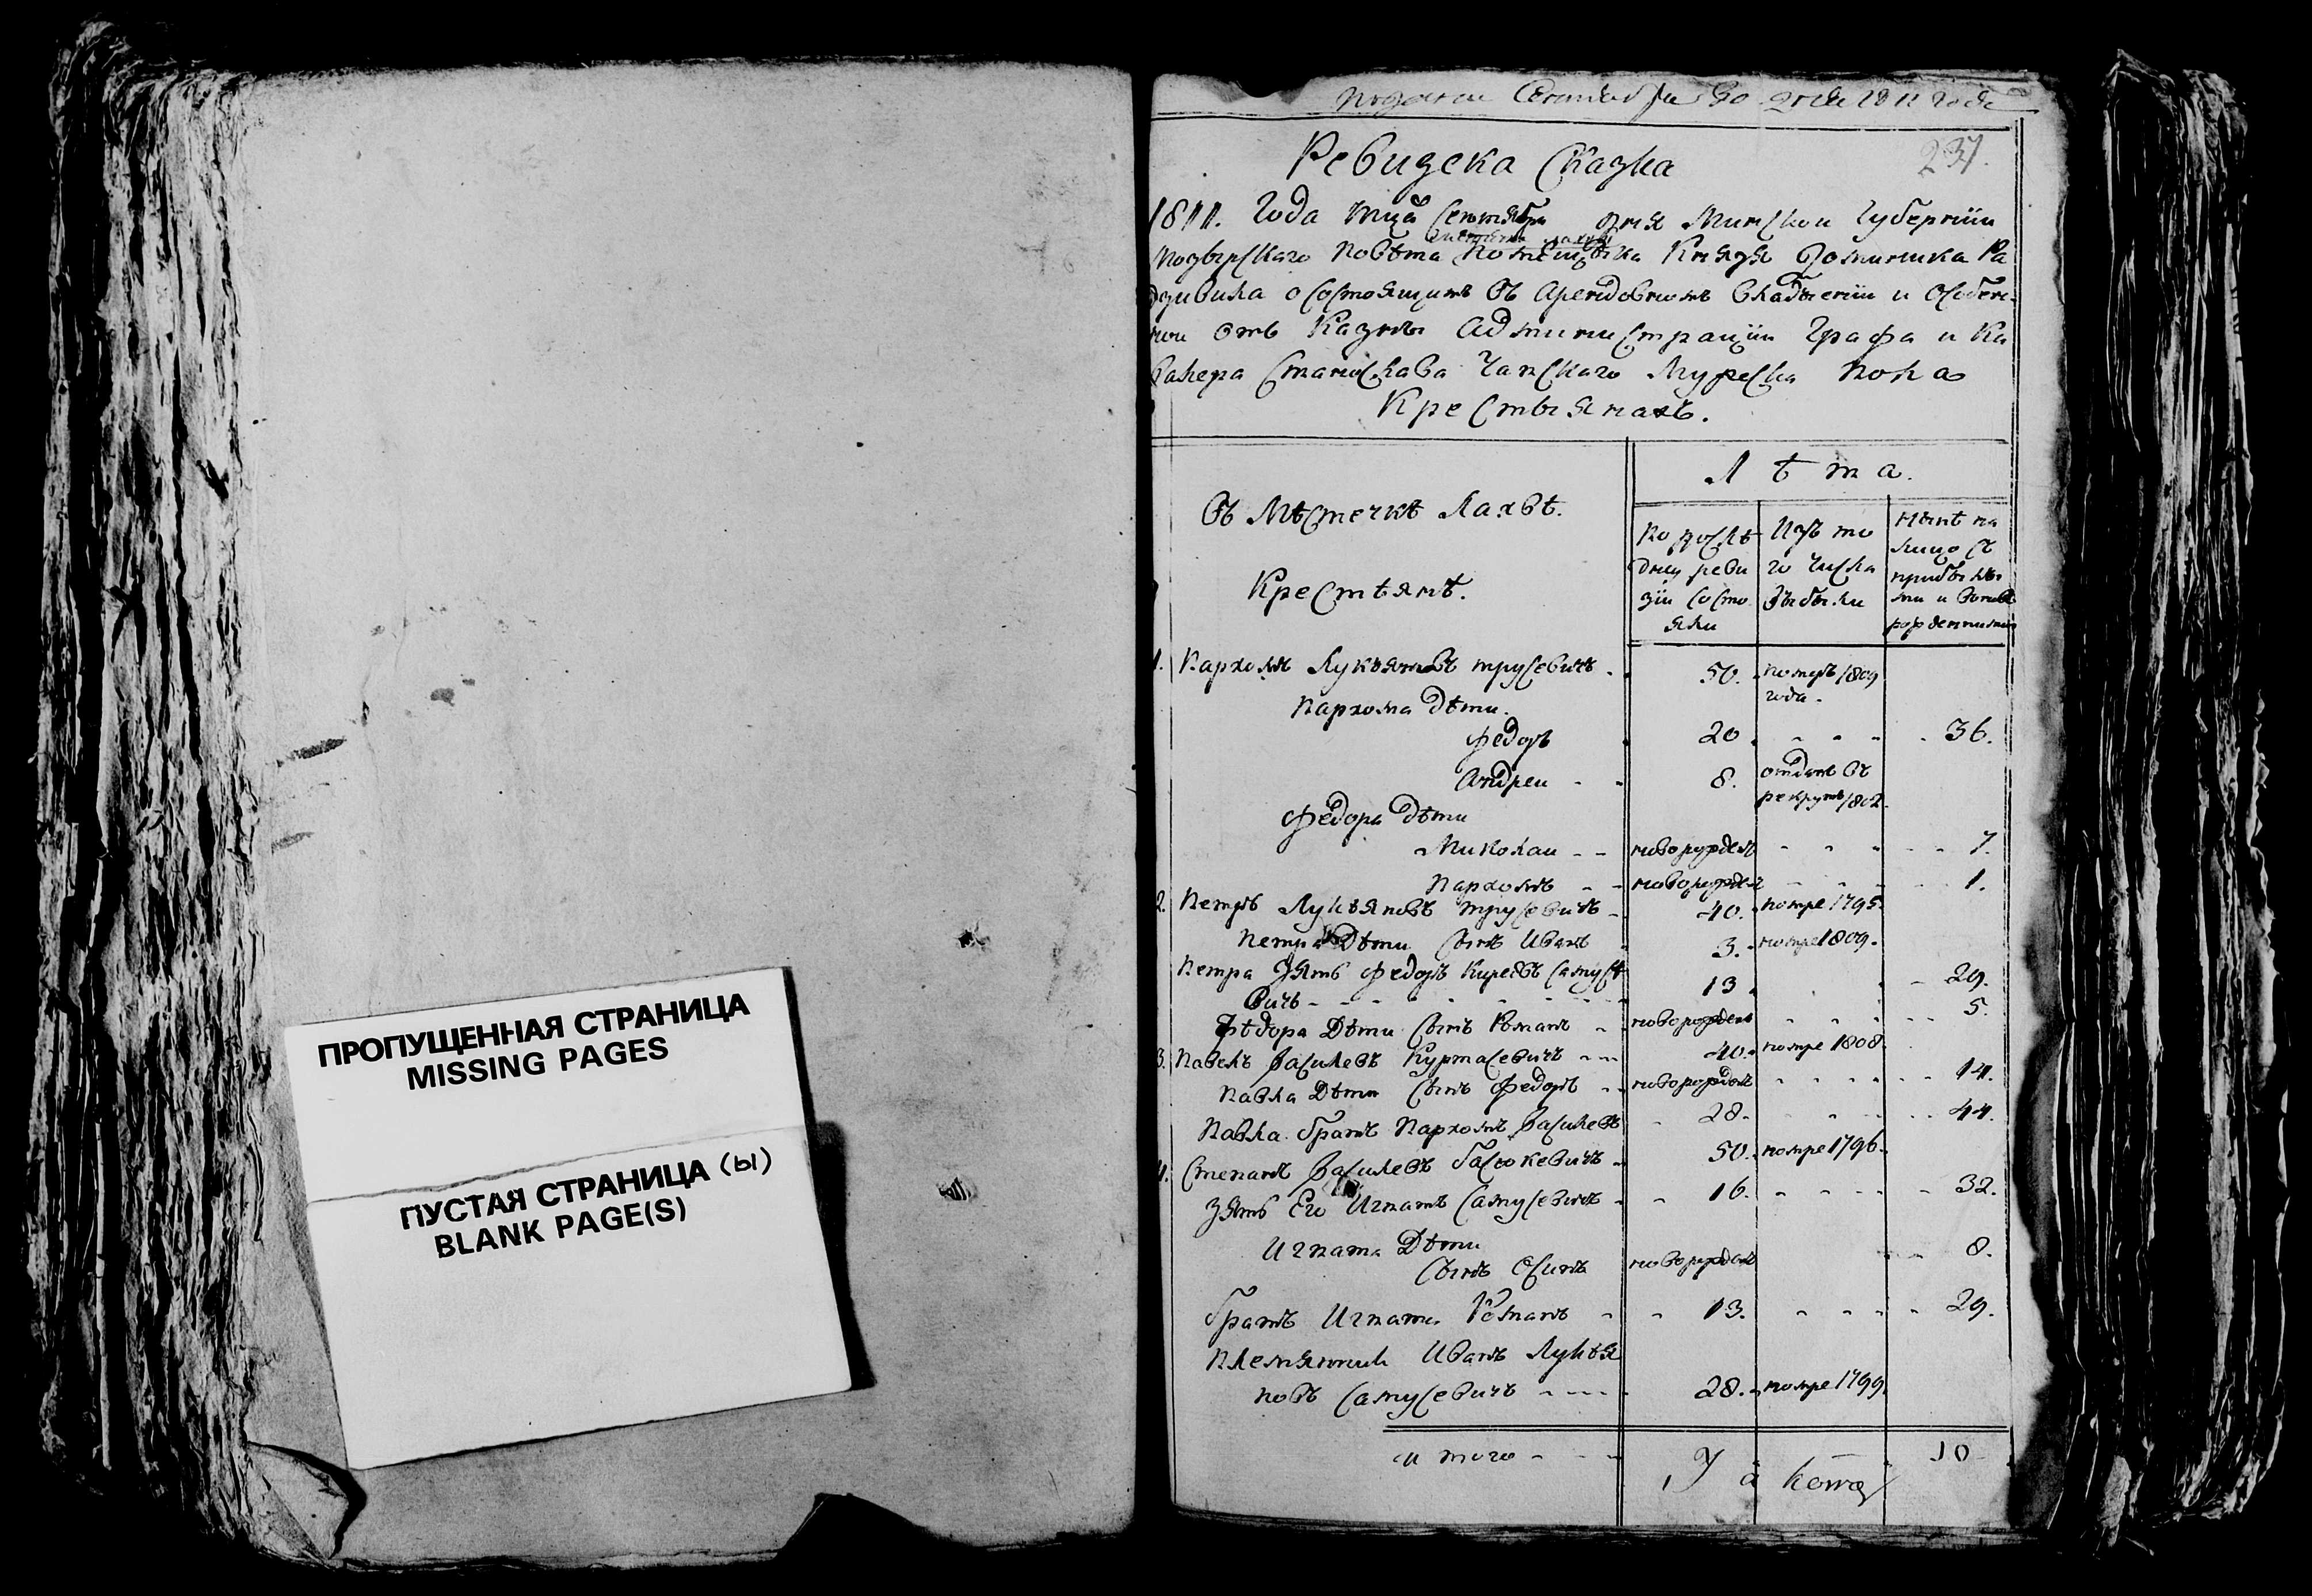 ПРОПУЩЕННАЯ СТРАНИЦА
MISSING PAGES
ПУСТАЯ СТРАНИЦА (Ы)
BLANK PAGE(S)
года 1811 года
237.
Ревизска Сказка
1811. Года Мца Сентября дня Минской Губернiи
Мозырскаго Повѣта Помѣщика Князя Доминика Ра
дзивила о состоящихъ въ Арендовномъ владѣнiи и особен
ной отъ Казны Администрацiи Графа и Ка
валера Станислава Чапскаго Мужеска пола
Крестьянахъ.
Лѣта.
Въ Мѣстечкѣ Лахвѣ.
Крестьянъ.
По послѣ
дней реви
зiи состо
яли
Изъ то
го числа
выбыли
Нынѣ на
лицо съ
прибылы
ми и вновь
рожденными
1. Пархомъ Лукьяновъ Трусевичъ 50. померъ 1809
года.
Пархома Дѣти.
Федоръ 20 36.
Андреи 8. отданъ въ
рекруты 1802.
Федора Дѣти
Миколаи новорожденъ 7.
Пархомъ новорожден 1.
2. Петръ Лукьяновъ Трусевичъ 40. помре 1795.
Петра Дѣти Сынъ Иванъ 3. помре 1809.
Петра Зять Федоръ Киреевъ Самусе
вичъ 13 29.
Федора Дѣти Сынъ Романъ новорожденъ 5.
3. Павелъ Василевъ Курталевичъ 40. помре 1808.
Павла Дѣти Сынъ Федоръ новорожденъ 14.
Павла братъ Пархомъ Василевъ 28. 44.
4. Степанъ Василевъ Басюкевичъ 50. помре 1796.
Зять Его Игнатъ Самусевичъ 16. 32.
Игната Дѣти
Сынъ Осипъ новорожденъ 8.
Братъ Игната Романъ 13. 29.
Племянникъ Иванъ Лукья
новъ Самусевичъ 28. помре 1799.
итого 10